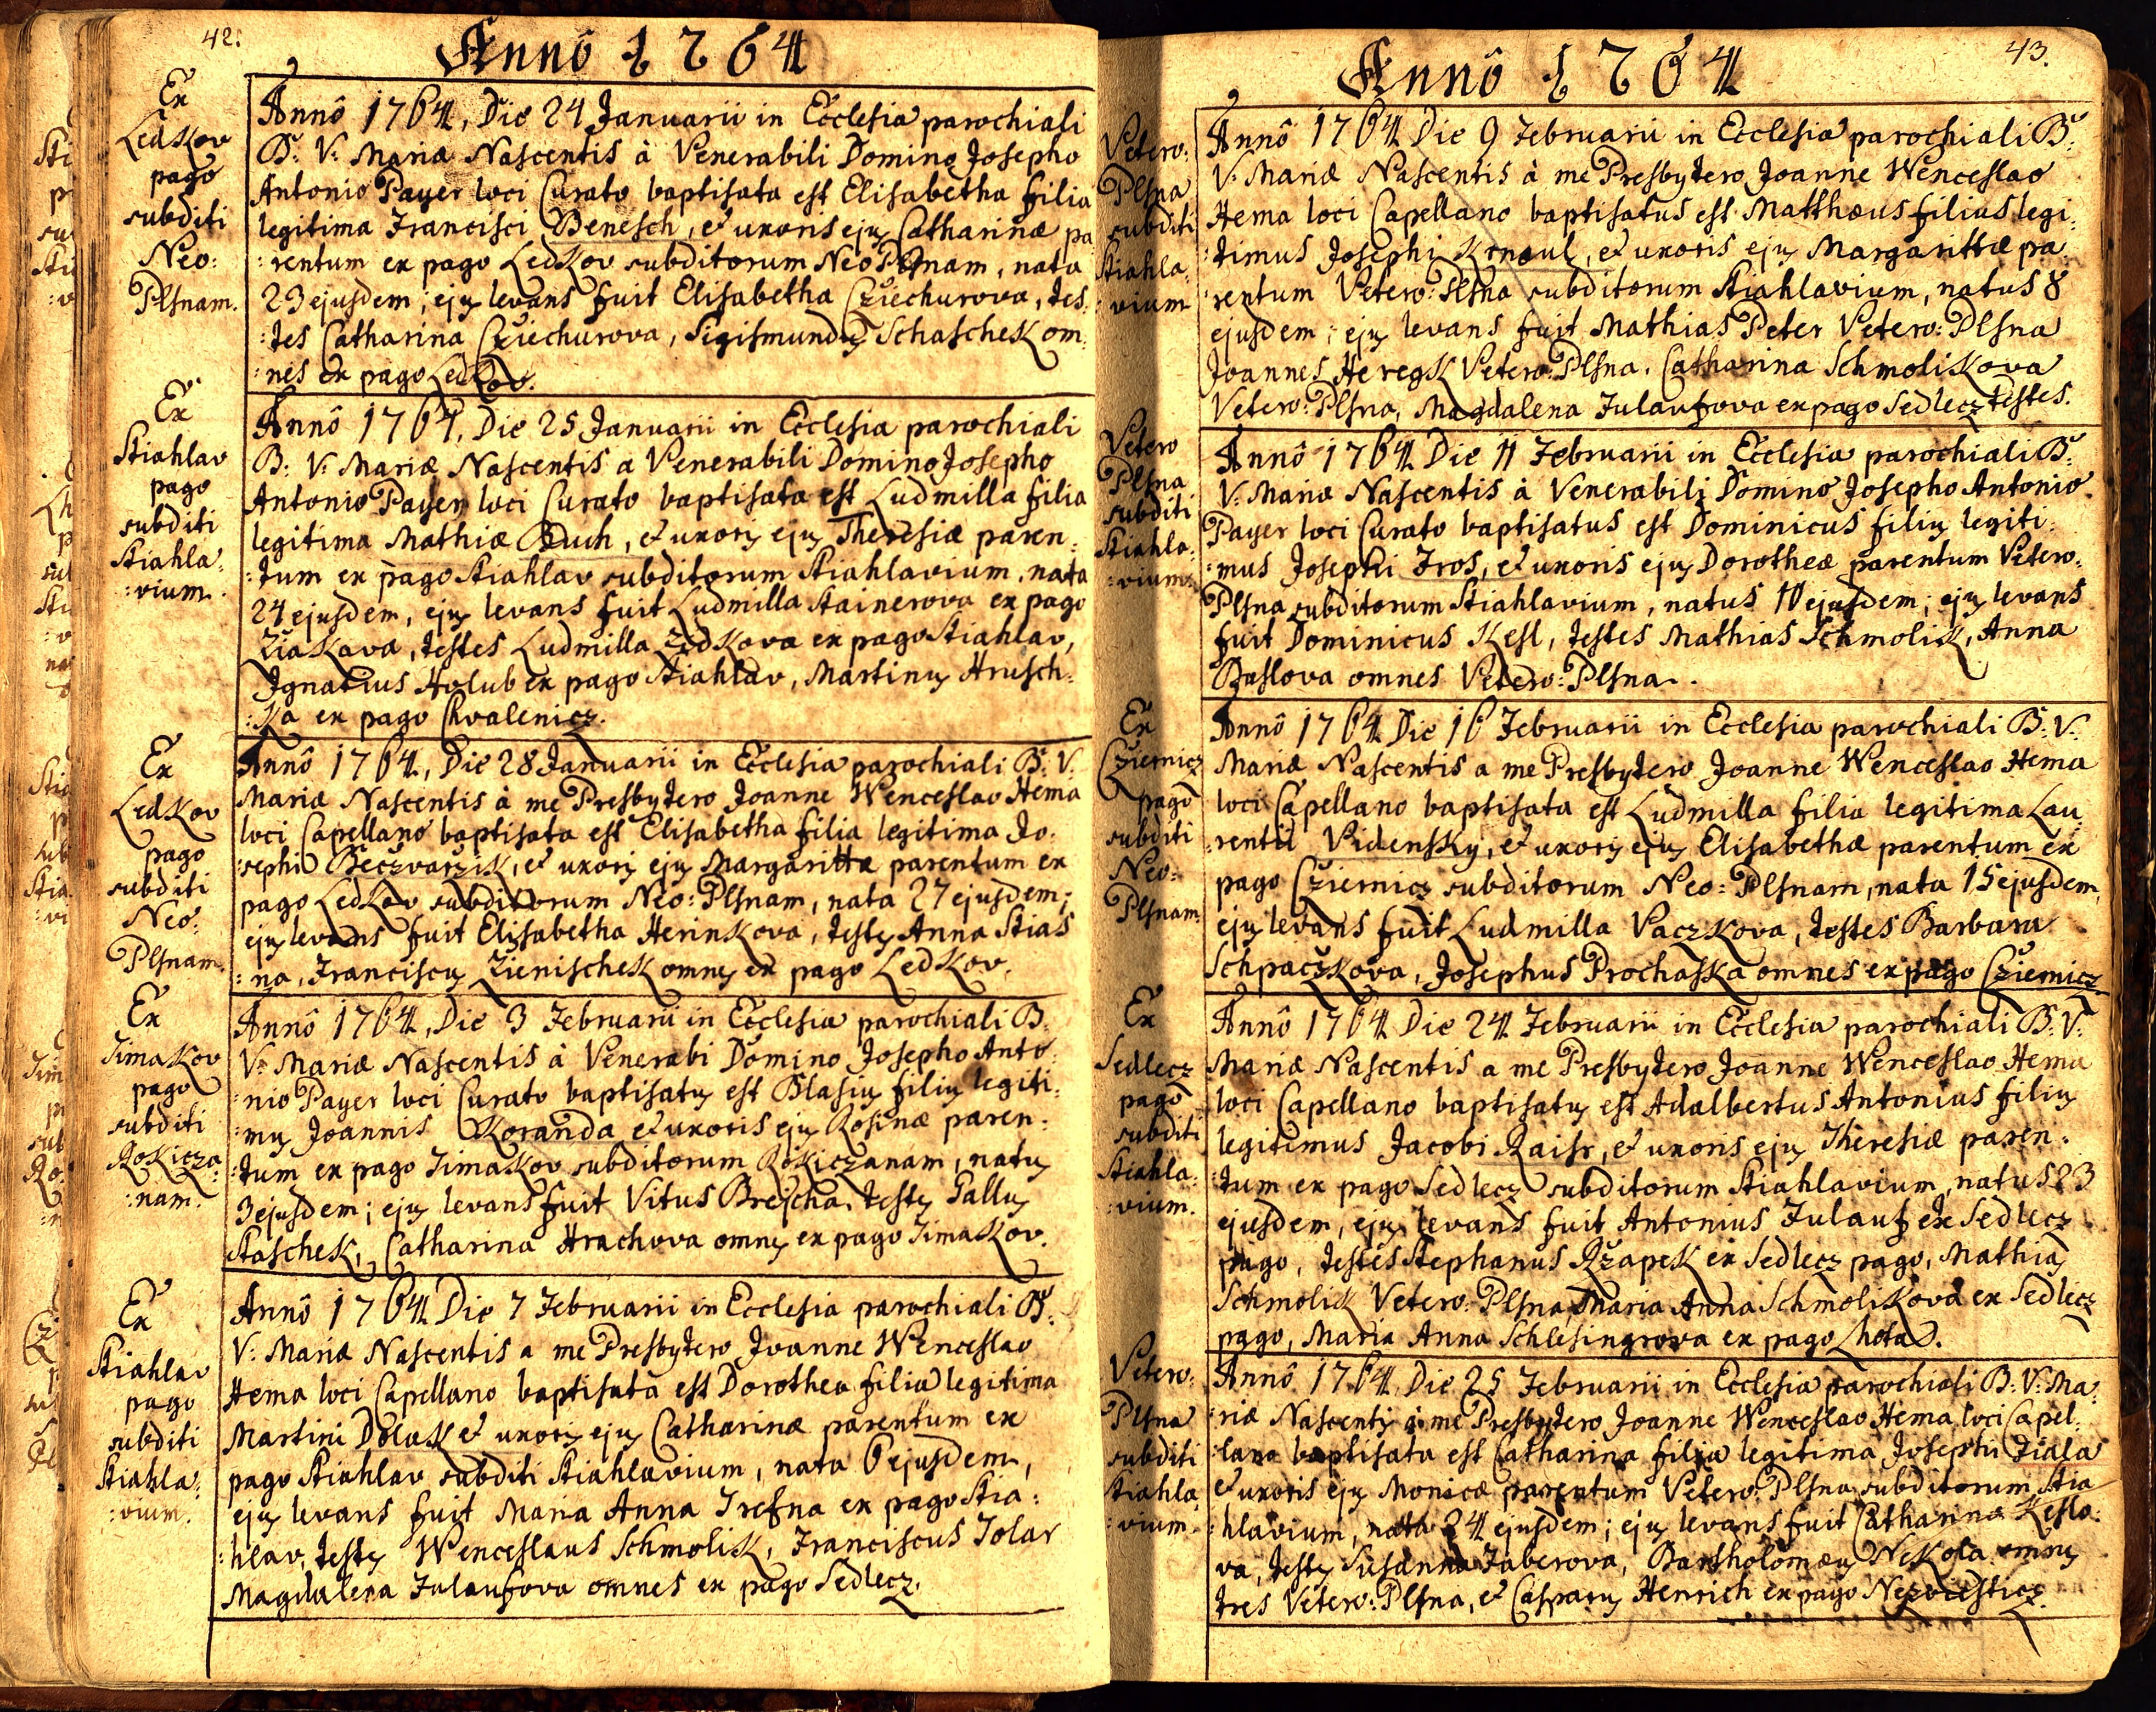 42.
Annô 1764
Ex
Ledkov
pago
subditi
Neo:
Plsnam.
Annô 1764, Die 24 Januarii in Ecclesia parochiali
B: V: Mariæ Nascentis à Venerabili Domino Josepho
Antonio Payer loci Curato baptisata est Elisabetha filia
legitima Francisci Benesch, et uxoris ejus Catharinæ pa
:rentum ex pago Ledkov subditorum Neo Plsnam, nata
23 ejusdem; ejus levans fuit Elisabetha Cziechurova, tes:
:tes Catharina Cziechurova, Sigismundus Schaschek om:
:nes ex pago Ledkov.
Ex
Stiahlav
pago
subditi
Stiahla:
:vium.
Annô 1764, Die 25 Januarii in Ecclesia parochiali
B: V: Mariæ Nascentis a Venerabili Domino Josepho
Antonio Payer loci Curato baptisata est Ludmilla filia
legitima Mathiæ Buch, et uxoris ejus Theresiæ paren:
:tum ex pago Stiahlav subditorum Stiahlavium, nata
24 ejusdem, ejus levans fuit Ludmilla Stainerova ex pago
Ziakava, testes Ludmilla Zedkova ex pago Stiahlav,
Ignatius Holub ex pago Stiahlav, Martinus Hrusch:
:ka ex pago Chvalenicz.
Ex
Ledkov
pago
subditi
Neo:
Plsnam.
Annô 1764, Die 28 Januarii in Ecclesia parochiali B: V:
Mariæ Nascentis à me Presbytero Joanne Wenceslao Hema
loci Capellano baptisata est Elisabetha filia legitima Jo:
:sephi Beczvarzik, et uxoris ejus Margarittæ parentum ex
pago Ledkov subditorum Neo: Plsnam, nata 27 ejusdem;
ejus levans fuit Elisabetha Herinkova, testes Anna Stias
:na, Franciscus Zienischek omnes ex pago Ledkov.
Ex
Timakov
pago
subditi
Rokicza:
:nam.
Annô 1764, Die 3 Februarii in Ecclesia parochiali B:
V: Mariæ Nascentis à Venerabi Domino Josepho Anto:
:nio Payer loci Curato baptisatus est Blasius filius legiti:
:mus Joannis Koranda et uxoris ejus Rosinæ paren:
:tum ex pago Timakov subditorum Rokiczanam, natus
3 ejusdem; ejus levans fuit Vitus Brejcha, testes Gallus
Staschek, Catharina Hrachova omnes ex pago Timakov.
Ex
Stiahlav
pago
subditi
Stiahla:
:vium.
Annô 1764 Die 7 Februarii in Ecclesia parochiali B:
V: Mariæ Nascentis a me Presbytero Joanne Wenceslao
Hema loci Capellano baptisata est Dorothea filia legitima
Martini Dolak et uxoris ejus Catharinæ parentum ex
pago Stiahlav subditi Stiahlavium, nata 6 ejusdem,
ejus levans fuit Maria Anna Trefna ex pago Stia:
:hlav, testes Wenceslaus Schmolik, Franciscus Tolar
Magdalena Fulaufova omnes ex pago Sedlecz.
43.
Annô 1764
Vetero:
Plsna
subditi
Stiahla:
:vium
Annô 1764 Die 9 Februarii in Ecclesia parochiali B:
V: Mariæ Nascentis à me Presbytero Joanne Wenceslao
Hema loci Capellano baptisatus est Matthæus filius legi:
:timus Josephi Krnoul, et uxoris ejus Margarittæ pa:
:rentum Vetero: Plsna subditorum Stiahlavium, natus 8
ejusdem; ejus levans fuit Mathias Peter Vetero: Plsna
Joannes Heregk Vetero: Plsna, Catharina Schmolikova
Vetero: Plsna, Magdalena Fulaufova ex pago Sedlecz testes.
Vetero
Plsna
subditi
Stiahla:
:vium.
Annô 1764 Die 11 Februarii in Ecclesia parochiali B:
V: Mariæ Nascentis à Venerabili Domino Josepho Antonio
Payer loci Curato baptisatus est Dominicus filius legiti:
:mus Josephi Fros, et uxoris ejus Dorotheæ parentum Vetero:
Plsna subditorum Stiahlavium, natus 10 ejusdem; ejus levans
fuit Dominicus Kesl, testes Mathias Schmolik, Anna
Baslova omnes Vetero: Plsna.
Ex
Cziernicz
pago
subditi
Neo:
Plsnam
Annô 1764 Die 16 Februarii in Ecclesia parochiali B: V:
Mariæ Nascentis a me Presbytero Joanne Wenceslao Hema
loci Capellano baptisata est Ludmilla filia legitima Lau:
:rentii Vidensky, et uxoris ejus Elisabethæ parentum ex
pago Cziernicz subditorum Neo: Plsnam, nata 15 ejusdem,
ejus levans fuit Ludmilla Vaczkova, testes Barbara
Schpaczkova, Josephus Prochaska omnes ex pago Cziernicz
Ex
Sedlecz
pago
subditi
Stiahla:
:vium.
Annô 1764 Die 24 Februarii in Ecclesia parochiali B: V:
Mariæ Nascentis a me Presbytero Joanne Wenceslao Hema
loci Capellano baptisatus est Adalbertus Antonius filius
legitimus Jacobi Raisr, et uxoris ejus Theresiæ paren:
:tum ex pago Sedlecz subditorum Stiahlavium, natus 23
ejusdem, ejus levans fuit Antonius Fulauf ex Sedlecz
pago, testes Stephanus Rzapek ex Sedlecz pago, Mathias
Schmolik Vetero: Plsna, Maria Anna Schmolikova ex Sedlecz
pago, Maria Anna Schlesingrova ex pago Lhota.
Vetero:
Plsna
subditi
Stiahla:
:vium
Annô 1764 Die 25 Februarii in Ecclesia parochiali B: V: Ma:
:riæ Nascentis à me Presbytero Joanne Wenceslao Hema loci Capel:
:lano baptisata est Catharina filia legitima Josephi Fiala
et uxoris ejus Monicæ parentum Vetero: Plsna subditorum Stia
:hlavium, nata 24 ejusdem; ejus levans fuit Catharina Keslo:
va, testes Susanna Faberova, Bartholomæus Nekola omnes
tres Vetero: Plsna, et Casparus Henrich ex pago Nezviesticz.